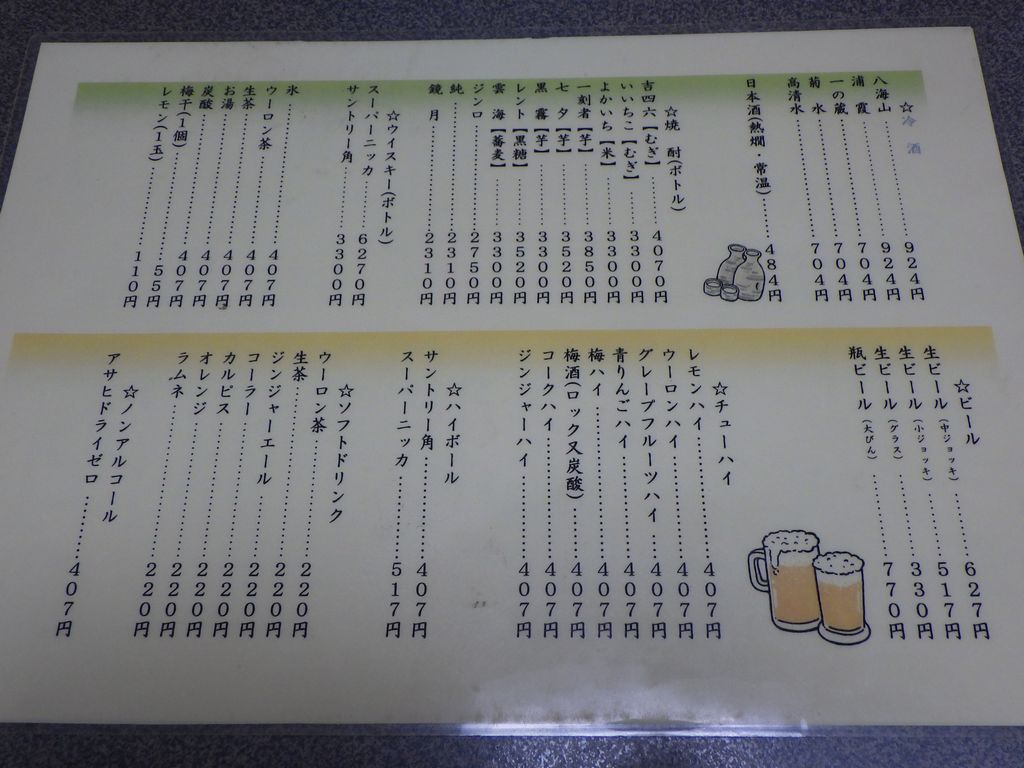 ☆冷酒
八海山…………924円
浦霞…………924円
一の蔵…………704円
菊水…………704円
高清水…………704円
日本酒(熱燗・常温)……484円
☆焼酎(ボトル)
吉四六【むぎ】……4070円
いいちこ【むぎ】……3300円
よかいち【米】……3300円
一刻者【芋】……3850円
七夕【芋】……3520円
黒霧【芋】……3300円
レント【黒糖】……3520円
雲海【蕎麦】……3300円
ジンロ…………2750円
純…………2310円
鏡月…………2310円
☆ウイスキー(ボトル)
スーパーニッカ……6270円
サントリー角……3300円
氷…………407円
ウーロン茶…………407円
生茶…………407円
お湯…………407円
炭酸…………407円
梅干(1個)…………55円
レモン(1玉)…………110円
☆ビール
生ビール(中ジョッキ)……627円
生ビール(小ジョッキ)……517円
生ビール(グラス)……330円
瓶ビール(大びん)……770円
☆チューハイ
レモンハイ…………407円
ウーロンハイ…………407円
グレープフルーツハイ……407円
青りんごハイ…………407円
梅ハイ…………407円
梅酒(ロック又炭酸)……407円
コークハイ…………407円
ジンジャーハイ…………407円
☆ハイボール
サントリー角…………407円
スーパーニッカ…………517円
☆ソフトドリンク
ウーロン茶…………220円
生茶…………220円
ジンジャーエール……220円
コーラー…………220円
カルピス…………220円
オレンジ…………220円
ラムネ…………220円
☆ノンアルコール
アサヒドライゼロ……407円